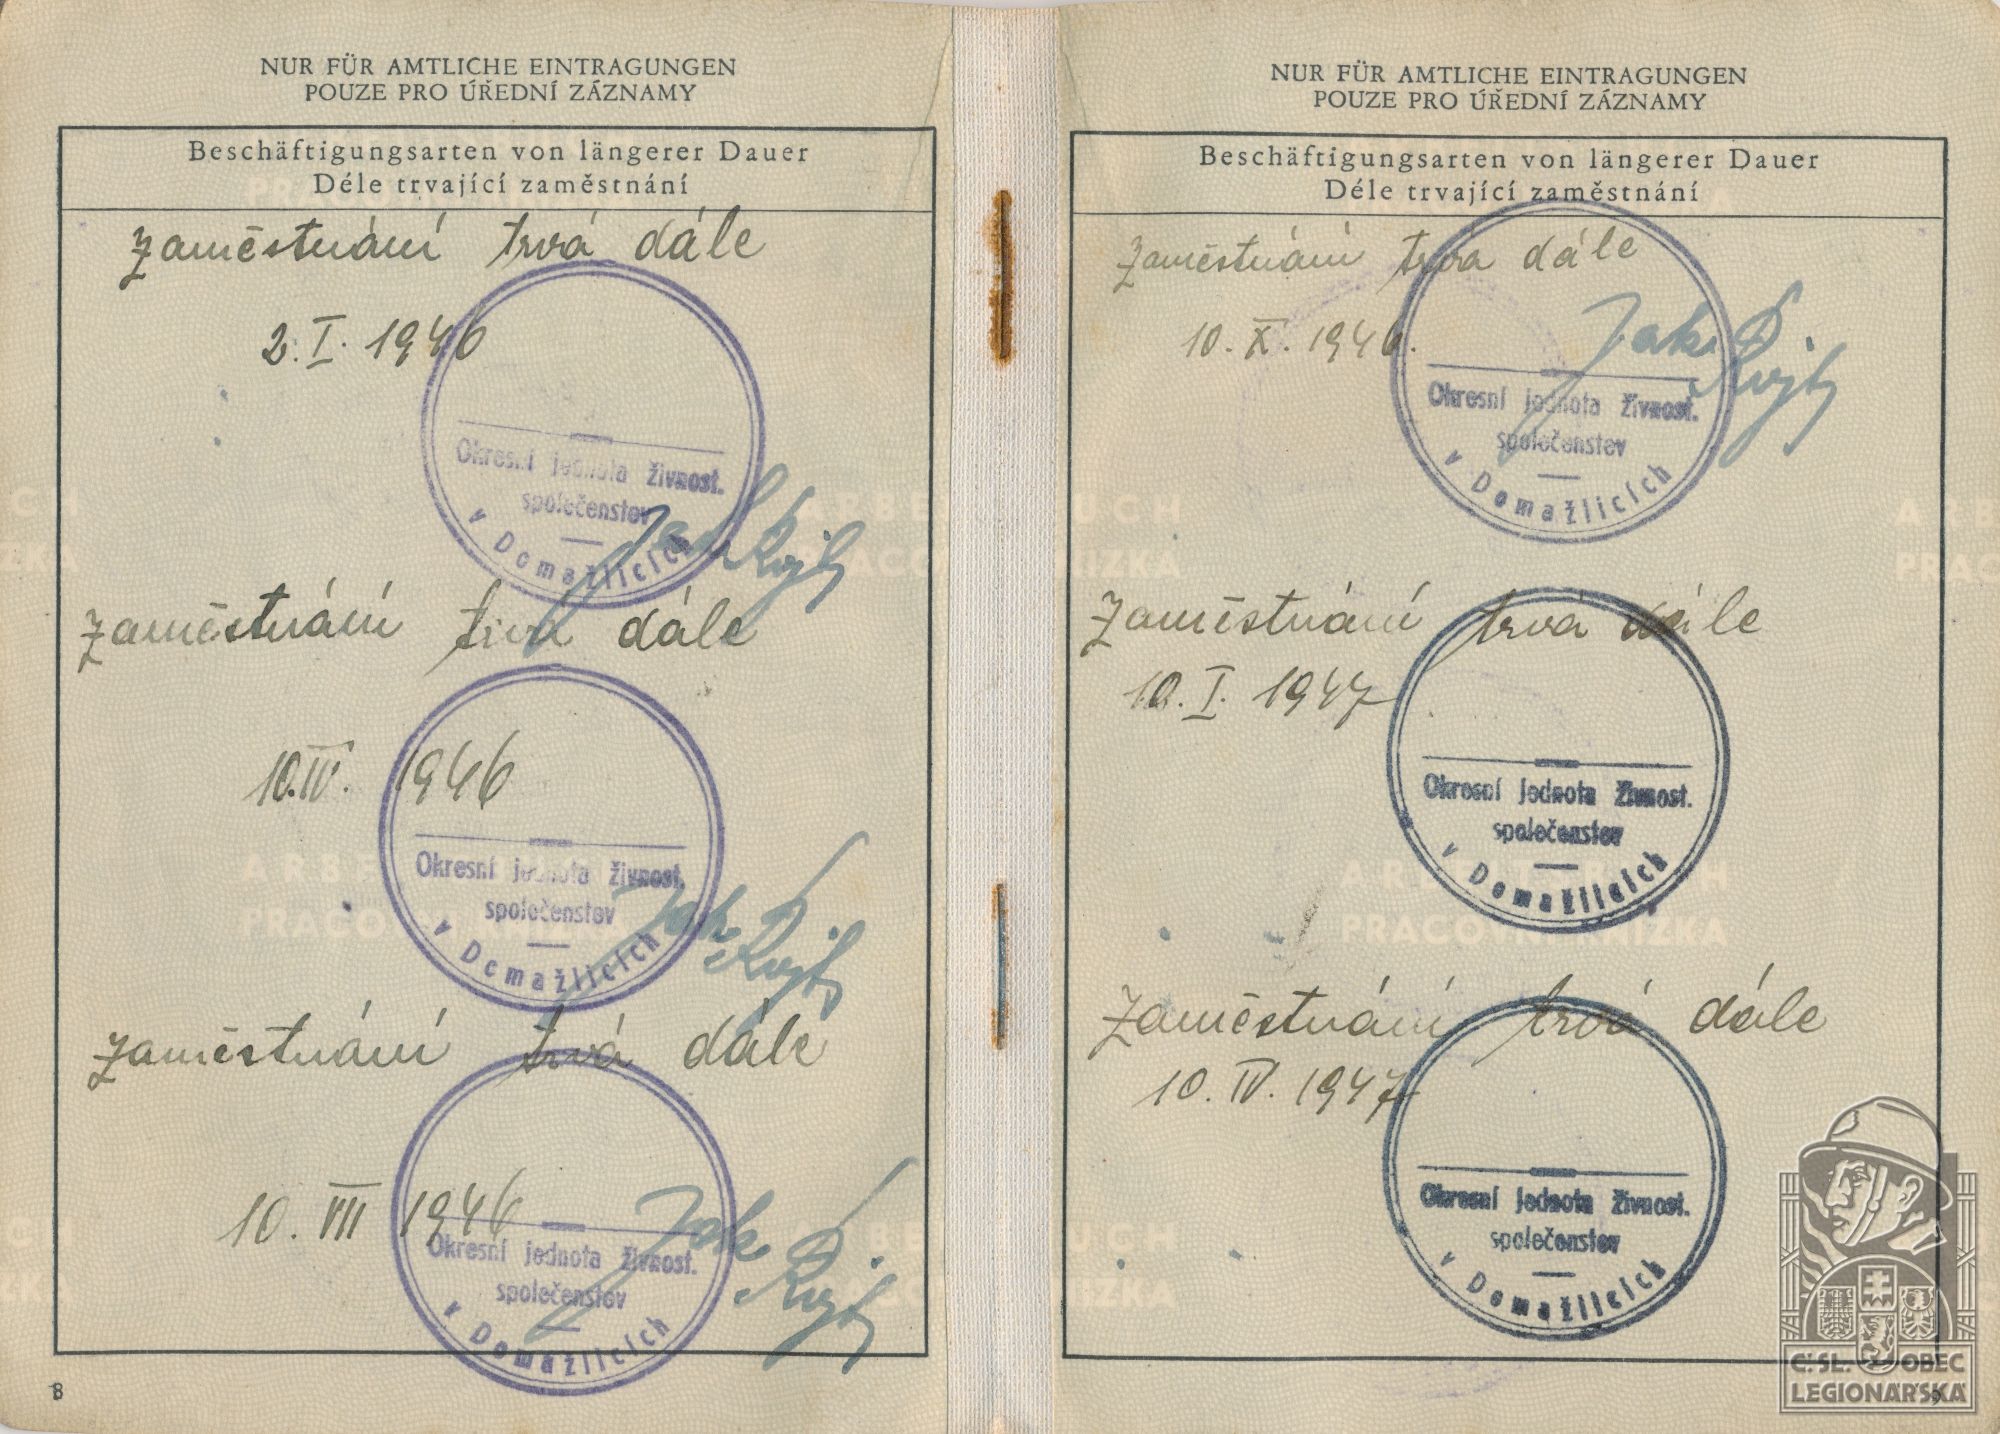 NUR FÜR AMTLICHE EINTRAGUNGEN
POUZE PRO ÚŘEDNÍ ZÁZNAMY
Beschäftigungsarten von längerer Dauer
Déle trvající zaměstnání
Zaměstnání trvá dále
2. I. 1946
Okresní jednota živnost.
společenstev
v Domažlicích
Zaměstnání trvá dále
10. IV. 1946
Okresní jednota živnost.
společenstev
v Domažlicích
Zaměstnání trvá dále
10. VIII 1946
Okresní jednota živnost.
společenstev
v Domažlicích
8
NUR FÜR AMTLICHE EINTRAGUNGEN
POUZE PRO ÚŘEDNÍ ZÁZNAMY
Beschäftigungsarten von längerer Dauer
Déle trvající zaměstnání
Zaměstnání trvá dále
10. X. 1946.
Okresní jednota živnost.
společenstev
v Domažlicích
Zaměstnání trvá dále
10. I. 1947
Okresní jednota živnost.
společenstev
v Domažlicích
ARBEITSBUCH
PRACOVNÍ KNÍŽKA
Zaměstnání trvá dále
10. IV. 1947
Okresní jednota živnost.
společenstev
v Domažlicích
9
Č.SL. OBEC
LEGIONÁŘSKÁ